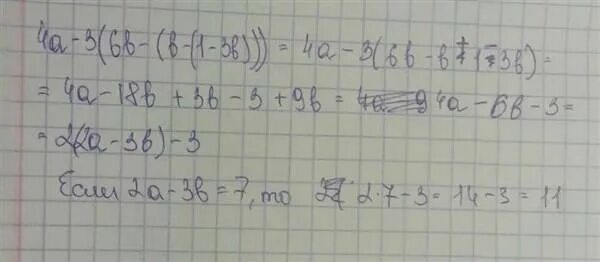 4a-3(6b-(b-(1-3b))) = 4a-3(6b-b+1-3b)=
= 4a-18b+3b-3+9b = 4a-6b-3=
= 2(2a-3b)-3
Если 2a-3b=7, то 2·7-3=14-3=11